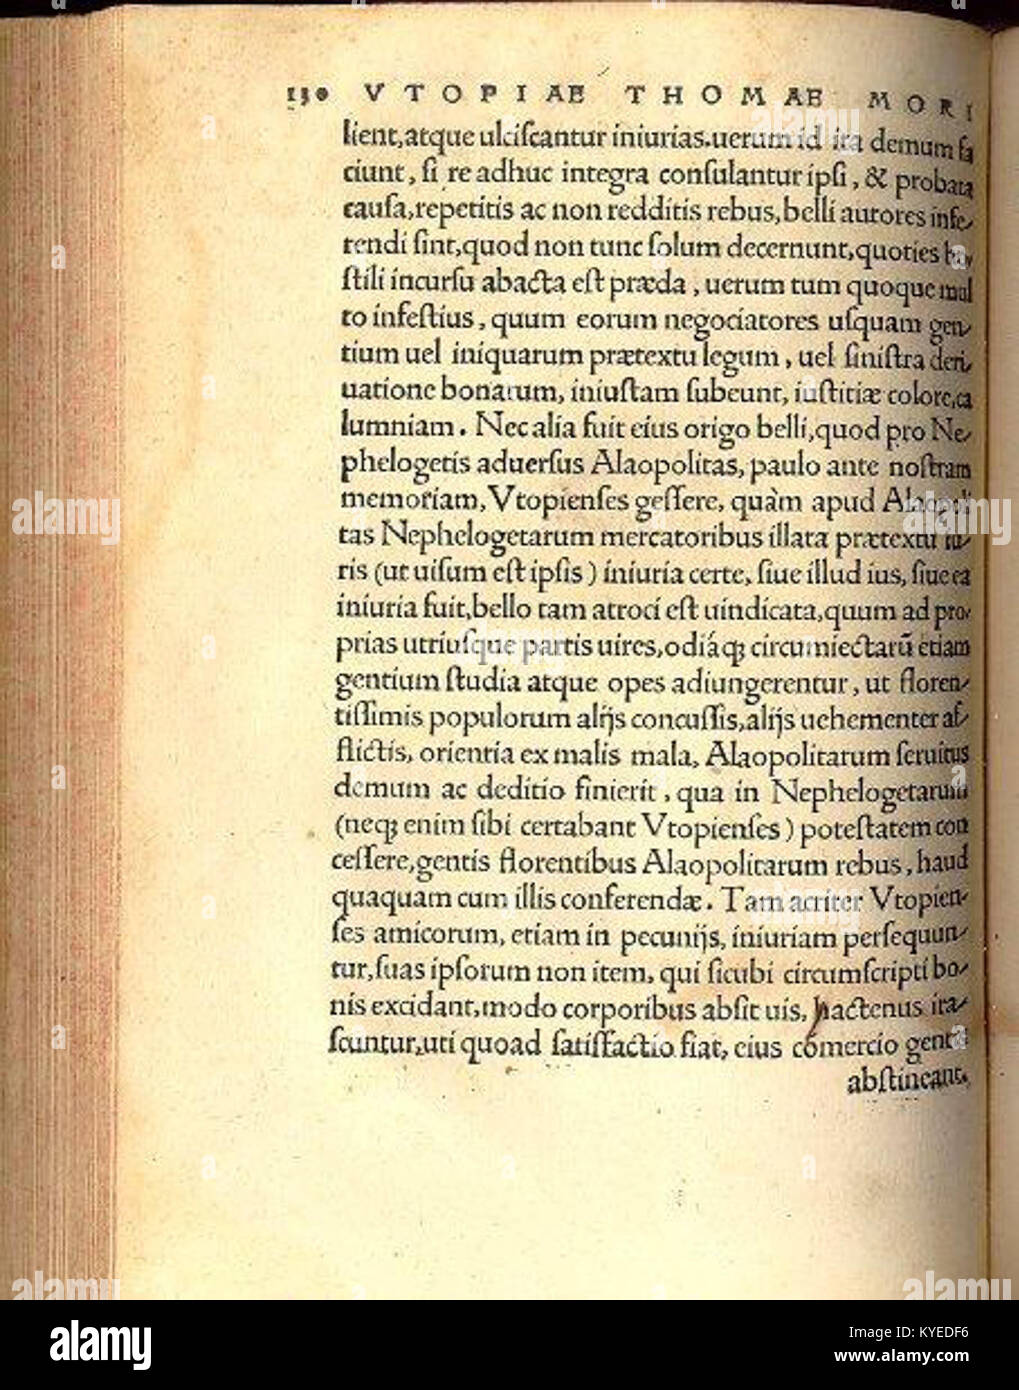 130 VTOPIAE THOMAE MORI
lient, atque ulciſcantur iniurias. uerum id ira demum fa
ciunt, ſi re adhuc integra conſulantur ipſi, & probata
cauſa, repetitis ac non redditis rebus, belli autores infe-
rendi ſint, quod non tunc ſolum decernunt, quoties ho-
ſtili incurſu abacta eſt præda, uerum tum quoque mul
to infeſtius, quum eorum negociatores uſquam gen-
tium uel iniquarum prætextu legum, uel ſiniſtra deri-
uatione bonarum, iniuſtam ſubeunt, iuſtitiæ colore, ca
lumniam. Nec alia fuit eius origo belli, quod pro Ne-
phelogetis aduerſus Alaopolitas, paulo ante noſtram
memoriam, Vtopienſes geſſere, quàm apud Alaopoli
tas Nephelogetarum mercatoribus illata prætextu iu-
ris (ut uiſum eſt ipſis) iniuria certe, ſiue illud ius, ſiue ea
iniuria fuit, bello tam atroci eſt uindicata, quum ad pro-
prias utriuſque partis uires, odiáq; circumiectarũ etiam
gentium ſtudia atque opes adiungerentur, ut floren-
tiſſimis populorum alijs concuſſis, alijs uehementer af-
flictis, orientia ex malis mala, Alaopolitarum ſeruitus
demum ac deditio finierit, qua in Nephelogetarum
(neq; enim ſibi certabant Vtopienſes) poteſtatem con
ceſſere, gentis florentibus Alaopolitarum rebus, haud
quaquam cum illis conferendæ. Tam acriter Vtopien-
ſes amicorum, etiam in pecunijs, iniuriam perſequun-
tur, ſuas ipſorum non item, qui ſicubi circumſcripti bo-
nis excidant, modo corporibus abſit uis, hactenus ira-
ſcuntur, uti quoad ſatiſfactio fiat, eius cõmercio gentis
abſtineant.
alamy
Image ID: KYEDF6
www.alamy.com